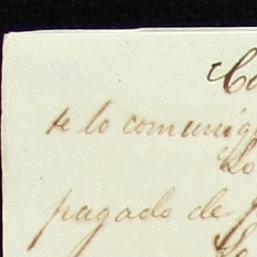 Co
te lo comuniq
Lo
pagado de